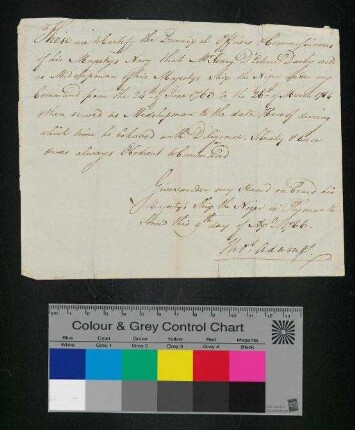 These are to Certify the Principal Officers & Commissioners
of his Majestys Navy that Mr Henry D'Esterre Darby served
as Midshipman of his Majestys Ship the Niger under my
Command from the 24th June 1763 to the 26th of March 1764
then served as Midshipman to the date hereof during
which time he behaved with Diligence Sobriety &
was always Obedient to Command
Given under my Hand on Board his
Majestys Ship the Niger in Plymouth
Sound this 9th day of Apl 1766.
Thos Adams
Colour & Grey Control Chart
Blue Cyan Green Yellow Red Magenta
White Grey 1 Grey 2 Grey 3 Grey 4 Black